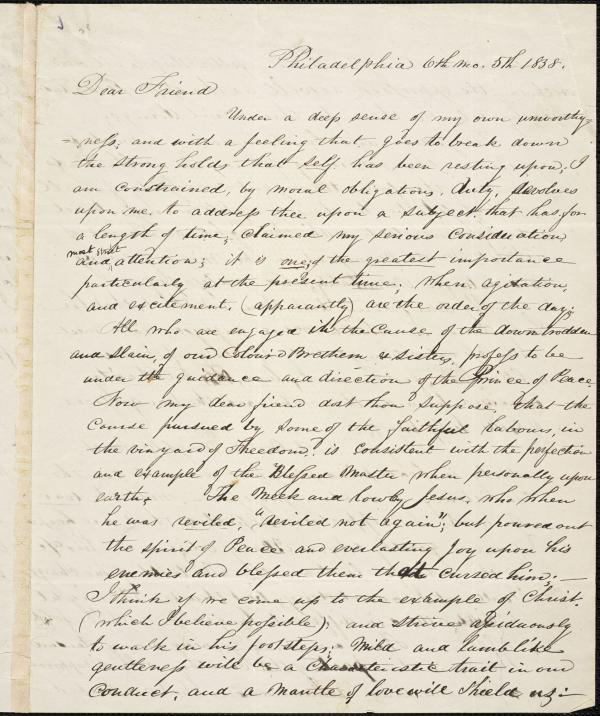 Philadelphia 6th mo. 5th 1838.
Dear Friend
Under a deep sense of my own unworthy=
=ness; and with a feeling that, goes to break down
the strong holds that self has been resting upon; I
am constrained, by moral obligations, duty, devolves
upon me, to address thee upon a subject, that has, for
a length of time; claimed my serious consideration
most strict
and attention; it is one, of the greatest importance
particularly at the present time; when agitation,
and excitement, (apparantly) are the order of the day;
All who are engaged in the Cause of the downtrodden
and slain, of our Colour'd Brethern & sisters, profess to be
under the guidance and direction of the Prince of Peace
Now my dear friend dost thou suppose, that the
Course pursued by some of the faithful labours, in
the vinyard of Freedom; is consistent with the perfection
and example of the Blessed Master when personally upon
earth,   The Meek and lowly Jesus, who when
he was reviled, "reviled not again"; but poured out
the spirit of Peace and everlasting Joy upon his
enemies and blessed them that cursed him;—
I think if we come up to the example of Christ.
(which I believe possible); and strive asiduously
to walk in his footsteps; Mild and lamblike
gentleness will be a characteristic trait in our
conduct, and a Mantle of love will shield us:—